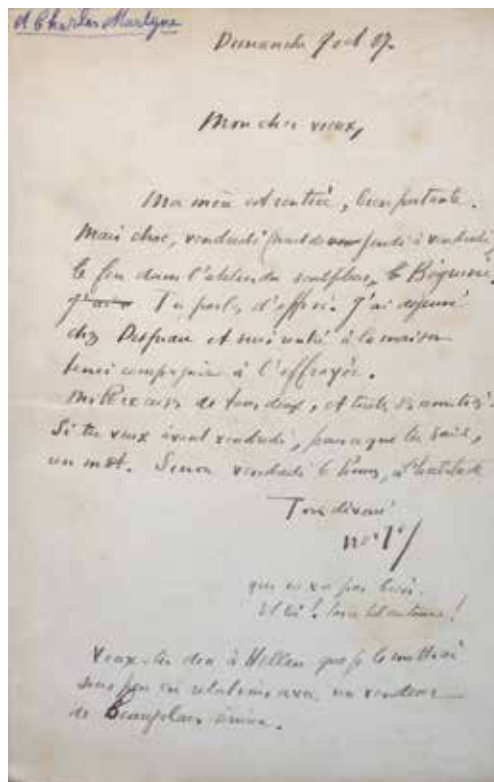 à Charles Martyne
Dimanche 7 oct 07.
Mon cher vieux,
Ma mère est rentrée, bien portante.
Mais choc, vendredi (nuit de jeudi à vendredi)
le feu dans l'atelier du sculpteur, le
Tu parles d'effroi. J'ai déjeuné
chez Despiau et suis rentré à la maison
tenir compagnie à l'effrayée.
Mille excuses de tous deux, et toutes nos amitiés.
Si tu veux avant vendredi, pour ce que tu sais,
un mot. Sinon vendredi 6 heures, d'habitude
Ton dévoué
qui va pas bien.
Et toi !
Veux-tu dire à Hellen que je le mettrai
sous peu en relations avec un vendeur
de